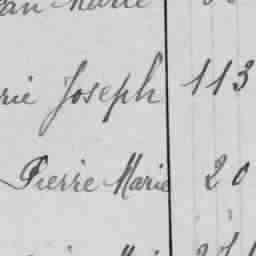 an Marie
rie Joseph 113
Pierre Marie 20